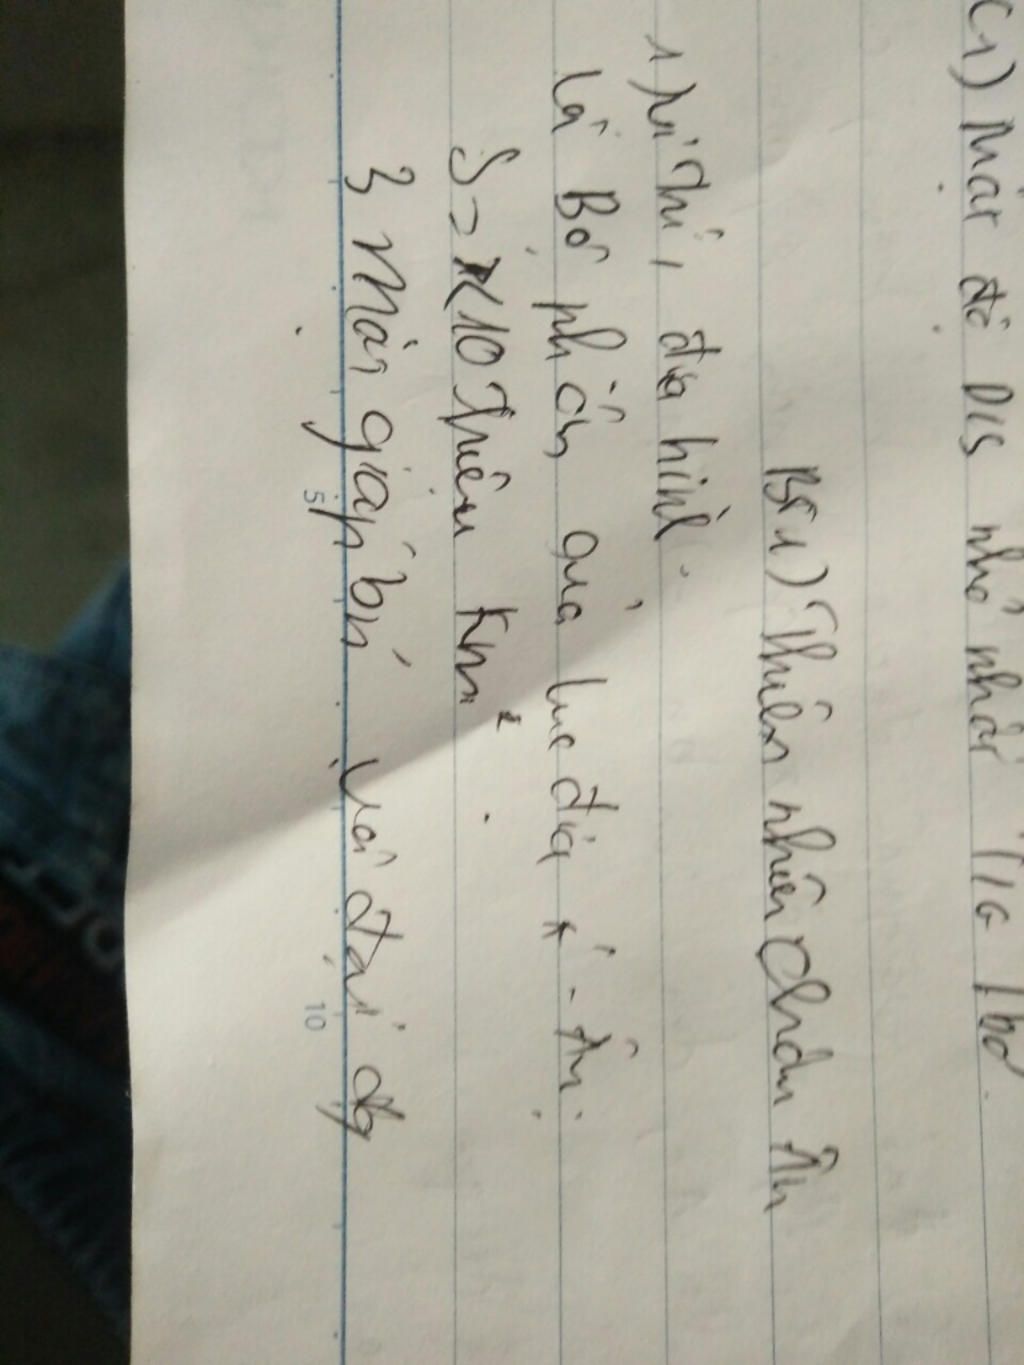 C1) Mật độ DIS nhỏ nhất TIG Ibơ.
B51) Thiên nhiên Châu Âu
1) Vị thí, địa hình.
Là Bộ phận của lục địa Á - Âu.
S = 10 Triệu Km²
3 Mặt giáp bn với đại dg
5
10